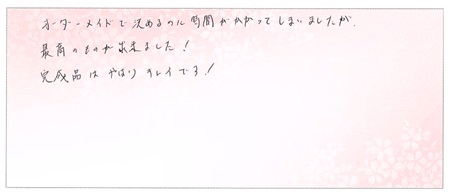 オーダーメイドで決めるのに時間がかかってしまいましたが、
最高のものが出来ました!
完成品はやはりキレイです!